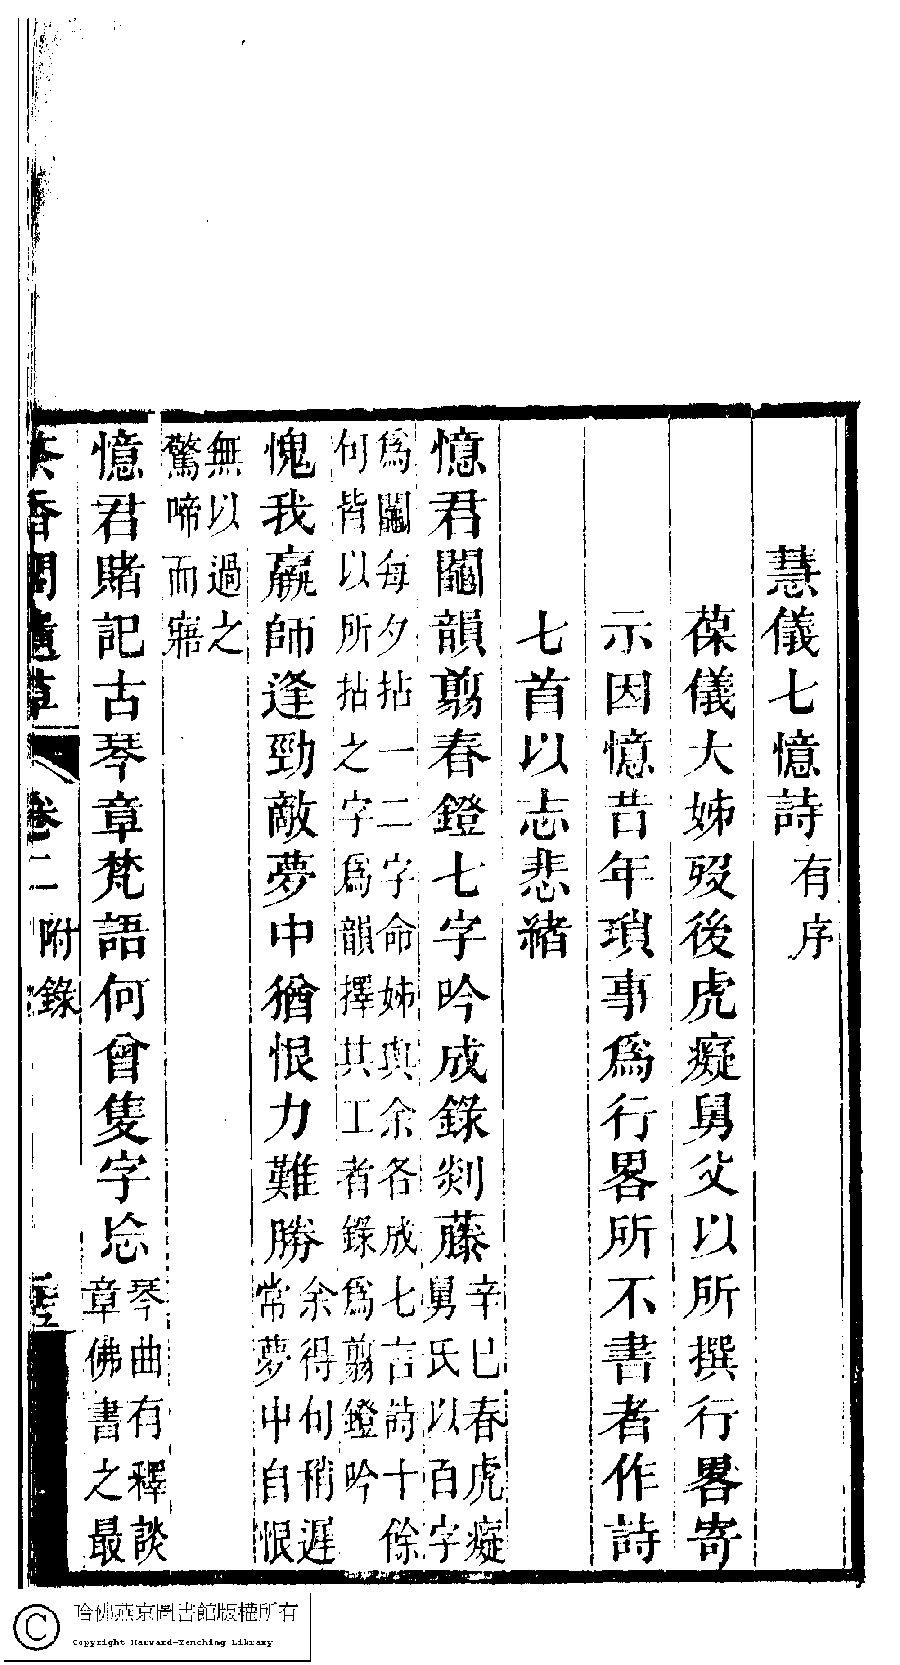 慧儀七憶詩有序
葆儀大姊歿後虎癡舅父以所撰行畧寄
示因憶昔年瑣事爲行畧所不書者作詩
七首以志悲緒
憶君鬮韻翦春鐙七字吟成錄剡藤辛巳春虎癡
舅氏以百字
爲鬮每夕拈一二字命姊與余各成七言詩十餘
句皆以所拈之字爲韻擇其工者錄爲翦鐙吟
愧我羸師逢勁敵夢中猶恨力難勝余得句稍遲
常夢中自恨
無以過之
驚啼而寤
憶君賭記古琴章梵語何曾隻字忘琴曲有釋談
章佛書之最
香閣遺草 卷二 附錄
哈佛燕京圖書館版權所有
Copyright Harvard-Yenching Library